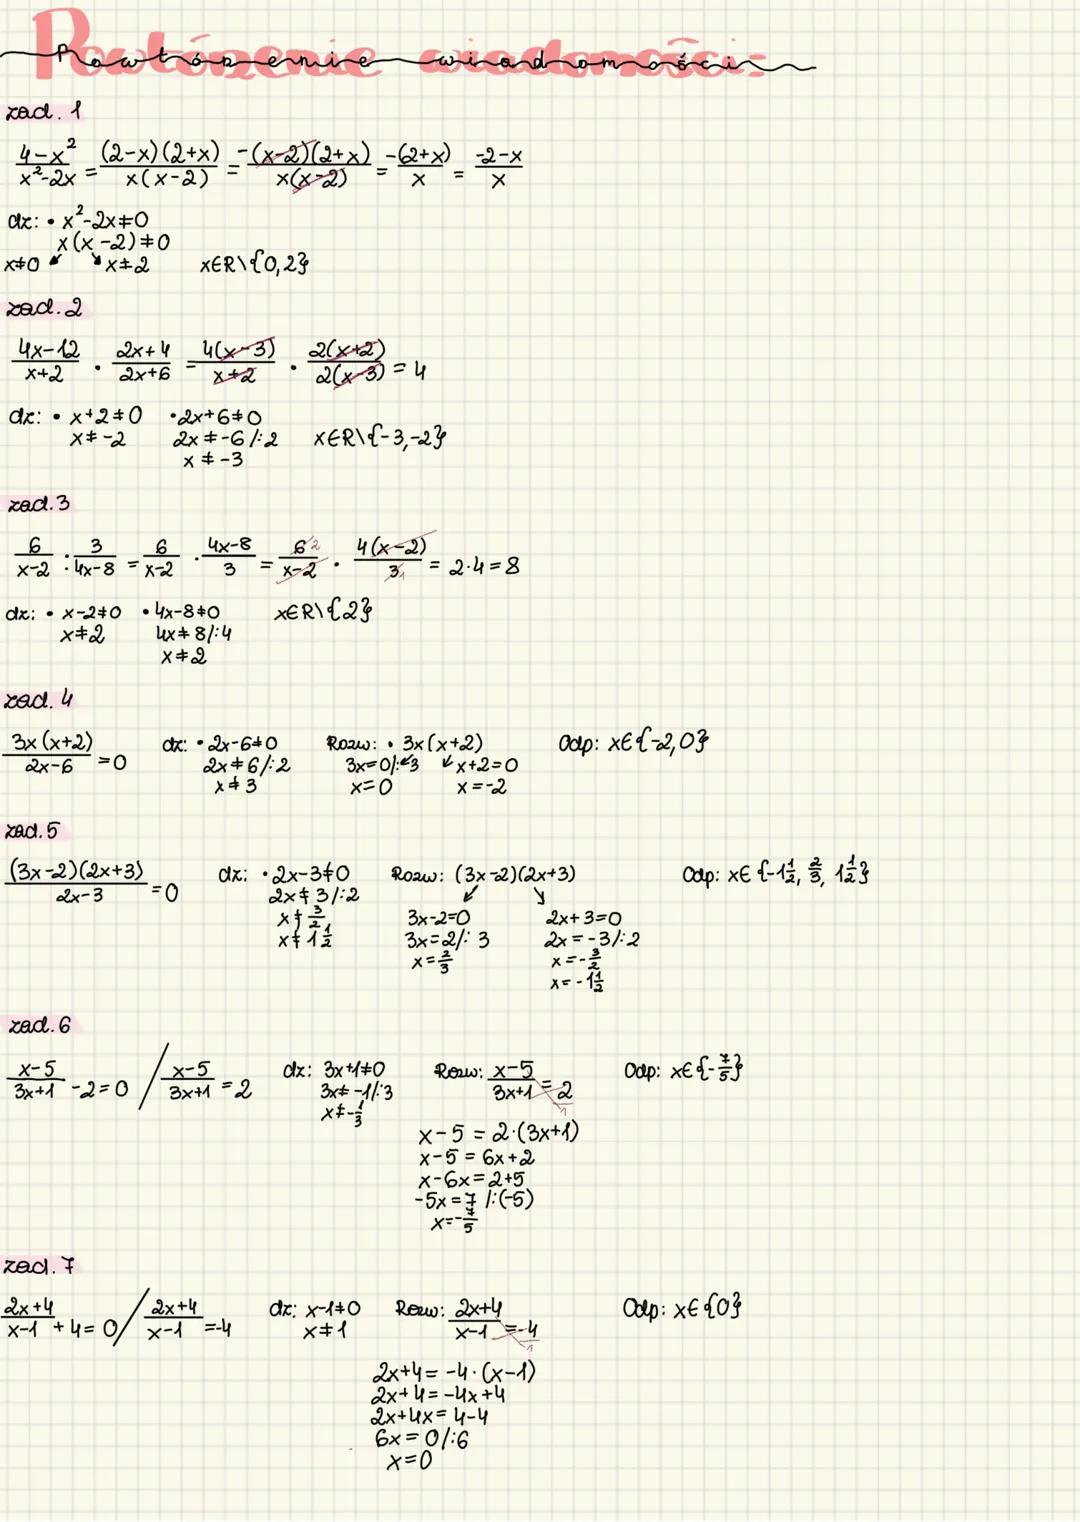 Powtórzenie wiadomości:
zad. 1
4-x²/x²-2x = (2-x)(2+x)/x(x-2) = -(x-2)(2+x)/x(x-2) = -(2+x)/x = -2-x/x
dz: • x²-2x≠0
x(x-2)≠0
x≠0 ↙ ↘ x≠2 x∈R\{0,2}
zad. 2
4x-12/x+2 · 2x+4/2x+6 = 4(x-3)/x+2 · 2(x+2)/2(x-3) = 4
dz: • x+2≠0 • 2x+6≠0
x≠-2 2x≠-6/:2 x∈R\{-3,-2}
x≠-3
zad. 3
6/x-2 : 3/4x-8 = 6/x-2 · 4x-8/3 = 6 2/x-2 · 4(x-2)/3 1 = 2·4=8
dz: • x-2≠0 • 4x-8≠0 x∈R\{2}
x≠2 4x≠8/:4
x≠2
zad. 4
3x(x+2)/2x-6 =0 dz: • 2x-6≠0 Rozw: • 3x(x+2) Odp: x∈{-2,0}
2x≠6/:2 3x=0/:3 ↙ ↙ x+2=0
x≠3 x=0 x=-2
zad. 5
(3x-2)(2x+3)/2x-3 =0 dz: • 2x-3≠0 Rozw: (3x-2)(2x+3) Odp: x∈{-1½, ⅔, 1½}
2x≠3/:2 ↙ ↘
x≠3/2 3x-2=0 2x+3=0
x≠1½ 3x=2/:3 2x=-3/:2
x=⅔ x=-3/2
x=-1½
zad. 6
x-5/3x+1 -2=0 / x-5/3x+1 =2 dz: 3x+1≠0 Rozw: x-5/3x+1 = 2/1 Odp: x∈{-7/5}
3x≠-1/:3
x≠-⅓
x-5 = 2·(3x+1)
x-5 = 6x+2
x-6x=2+5
-5x=7 /:(-5)
x=-7/5
zad. 7
2x+4/x-1 +4=0 / 2x+4/x-1 =-4 dz: x-1≠0 Rozw: 2x+4/x-1 = -4/1 Odp: x∈{0}
x≠1
2x+4=-4·(x-1)
2x+4=-4x+4
2x+4x=4-4
6x=0/:6
x=0